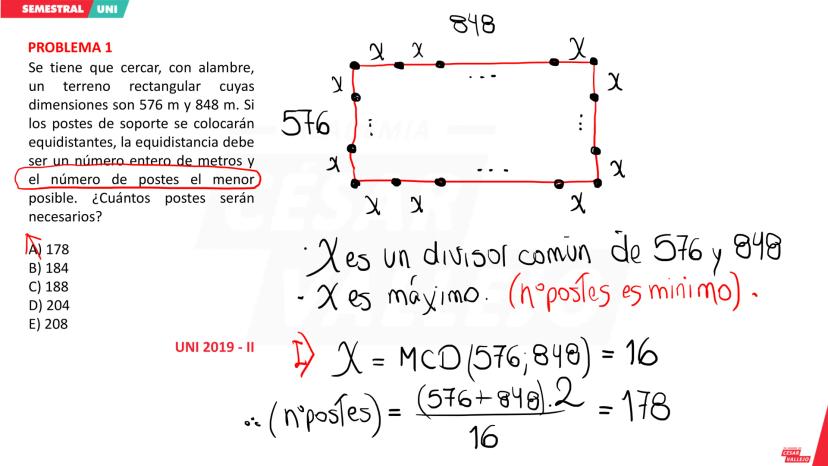 SEMESTRAL UNI
PROBLEMA 1
Se tiene que cercar, con alambre,
un terreno rectangular cuyas
dimensiones son 576 m y 848 m. Si
los postes de soporte se colocarán
equidistantes, la equidistancia debe
ser un número entero de metros y
el número de postes el menor
posible. ¿Cuántos postes serán
necesarios?
A) 178
B) 184
C) 188
D) 204
E) 208
UNI 2019 - II
848
X X X
X X
...
576
ACADEMIA
CÉSAR
VALLEJO
X X
...
X X X
· X es un divisor común de 576 y 848
· X es máximo. (n° postes es minimo).
I) X = MCD(576; 848) = 16
∴ (n° postes) = (576 + 848).2 = 178
16
CÉSAR
VALLEJO